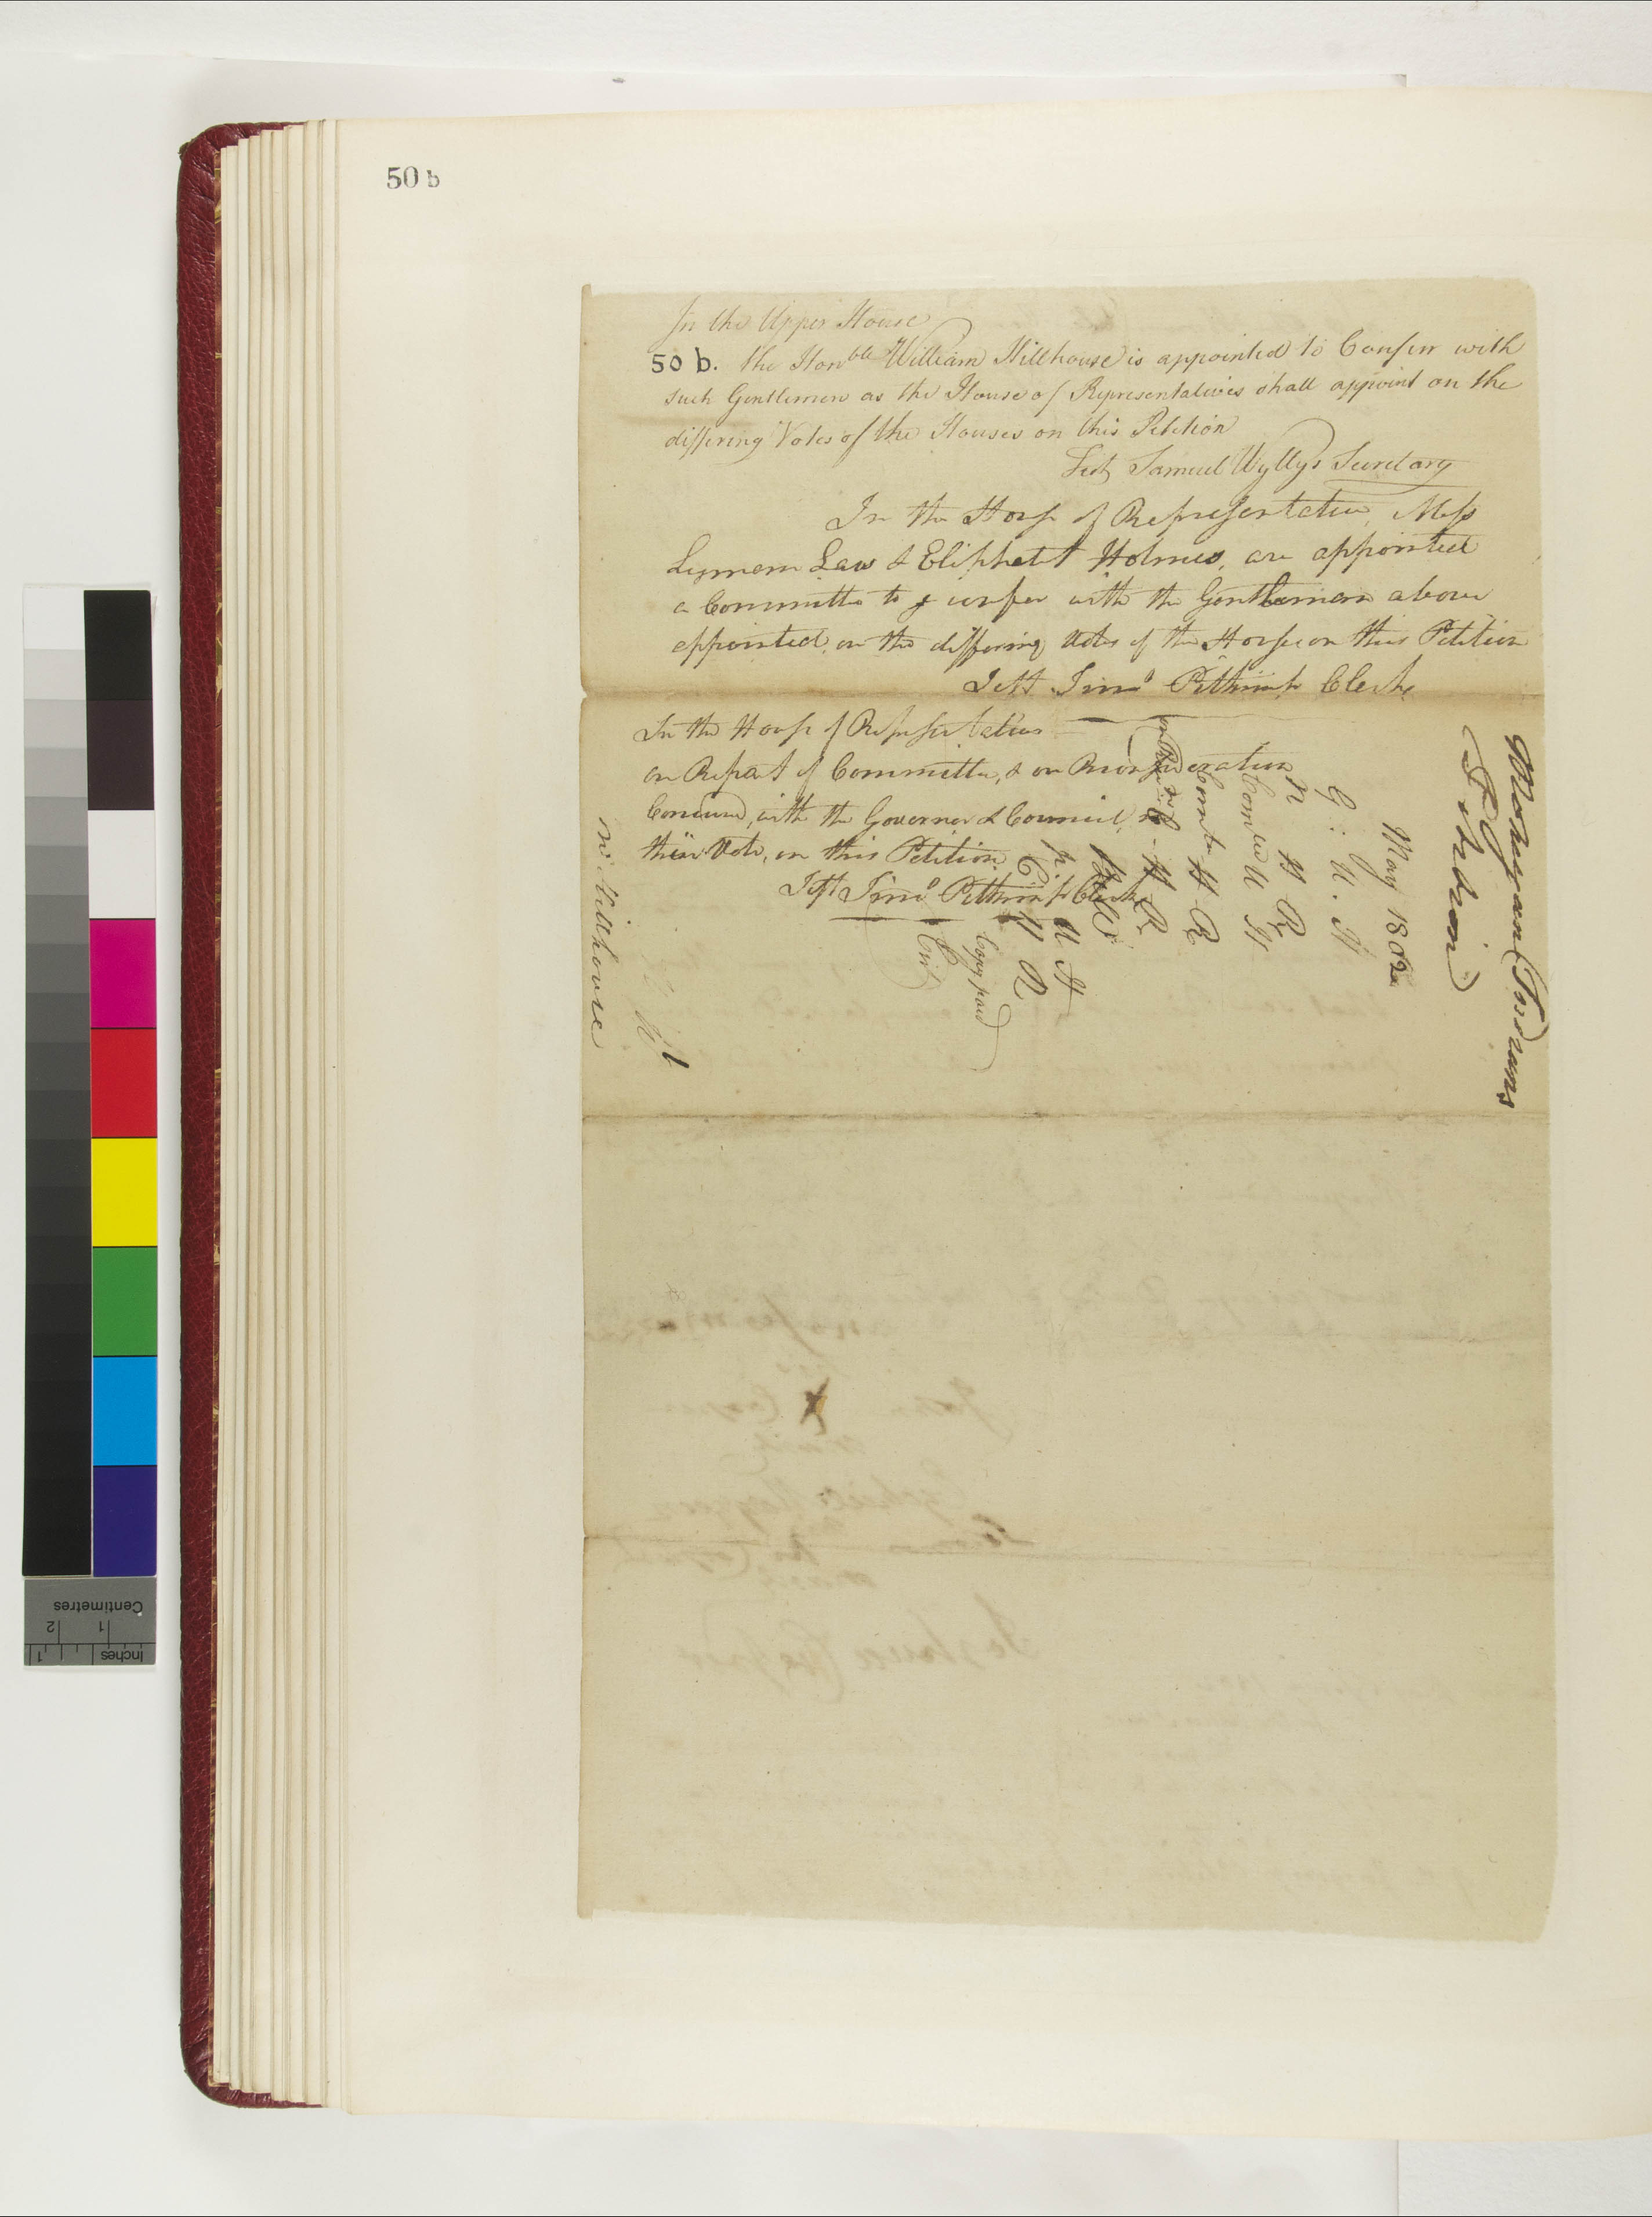 50 b
In the Upper House
50 b. the Honble William Hillhouse is appointed to Confer with
such Gentlemen as the House of Representatives shall appoint on the
differing Votes of the Houses on this Petition
Test Samuel Wyllys Secretary
In the House of Representatives, Mess
Lyman Law & Eliphalet Holmes, are appointed
a Committee to confer with the Gentleman above
appointed, on the differing Votes of the House on this Petition
Test Timo Pitkin Jr Clerk
In the House of Representatives
on Report of Committee, & on Reconsideration
Concurred, with the Governor & Council, in
their Vote, on this Petition
Test Timo Pitkin Jr Clerk
Mohegan (Indians
May 1802
G : U . H
N H R
Comtee U H
Comtee H R
H R
U H
H R
Copy paid
Ent
Mr Hillhouse
Centimetres
1 2
Inches 1